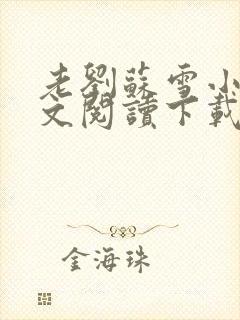 老劉蘇雪小
文閱讀下載
金海珠